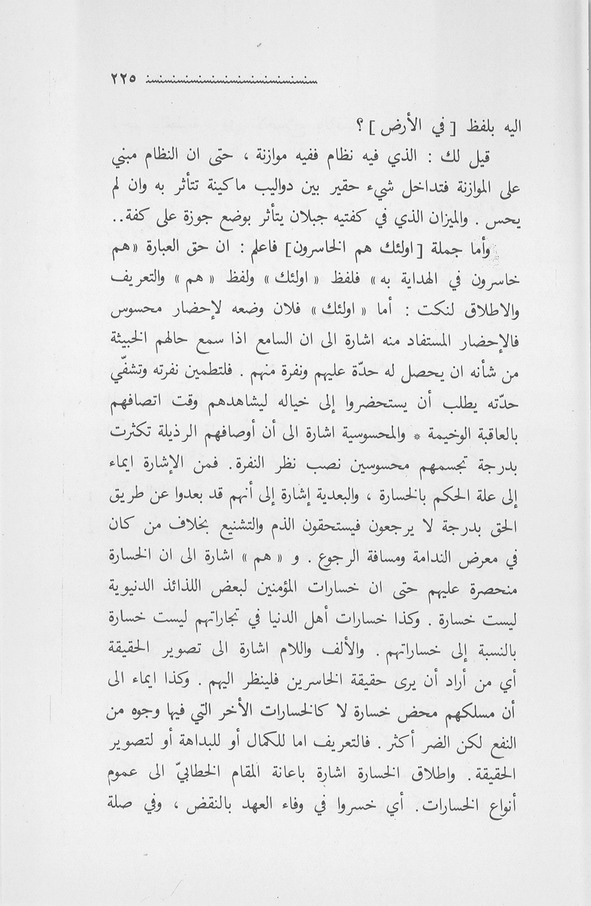 ٢٢٥
اليه بلفظ [في الأرض] ؟
قيل لك : الذي فيه نظام ففيه موازنة ، حتى ان النظام مبني
على الموازنة فتداخل شيء حقير بين دواليب ماكينة تتأثر به وان لم
يحس . والميزان الذي في كفتيه جبلان يتأثر بوضع جوزة على كفة..
وأما جملة [اولئك هم الخاسرون] فاعلم : ان حق العبارة «هم
خاسرون في الهداية به» فلفظ «اولئك» ولفظ «هم» والتعريف
والاطلاق لنكت : أما «اولئك» فلان وضعه لإحضار محسوس
فالإحضار المستفاد منه اشارة الى ان السامع اذا سمع حالهم الخبيثة
من شأنه ان يحصل له حدّة عليهم ونفرة منهم . فلتطمين نفرته وتشفّي
حدّته يطلب أن يستحضروا إلى خياله ليشاهدهم وقت اتصافهم
بالعاقبة الوخيمة * والمحسوسية اشارة الى أن أوصافهم الرذيلة تكثرت
بدرجة تجسمهم محسوسين نصب نظر النفرة. فمن الإشارة ايماء
إلى علة الحكم بالخسارة ، والبعدية إشارة إلى أنهم قد بعدوا عن طريق
الحق بدرجة لا يرجعون فيستحقون الذم والتشنيع بخلاف من كان
في معرض الندامة ومسافة الرجوع . و «هم» اشارة الى ان الخسارة
منحصرة عليهم حتى ان خسارات المؤمنين لبعض اللذائذ الدنيوية
ليست خسارة . وكذا خسارات أهل الدنيا في تجاراتهم ليست خسارة
بالنسبة إلى خساراتهم . والألف واللام اشارة الى تصوير الحقيقة
أي من أراد أن يرى حقيقة الخاسرين فلينظر اليهم . وكذا ايماء الى
أن مسلكهم محض خسارة لا كالخسارات الأخر التي فيها وجوه من
النفع لكن الضر أكثر . فالتعريف اما للكمال أو للبداهة أو لتصوير
الحقيقة. واطلاق الخسارة اشارة باعانة المقام الخطابيّ الى عموم
أنواع الخسارات. أي خسروا في وفاء العهد بالنقض ، وفي صلة